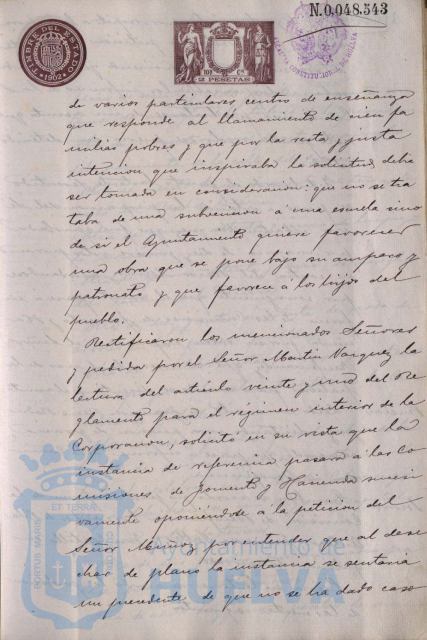 N.0.048.543
TIMBRE DEL ESTADO
1902
2 PESETAS
de varios particulares centro de enseñanza
que responde al llamamiento de cien fa
milias pobres y que por la recta y justa
intencion que inspiraba la solicitud debia
ser tomada en consideracion: que no se tra
taba de una subvencion á una escuela sino
de si el Ayuntamiento quiere favorecer
una obra que se pone bajo su amparo y
patronato y que favorece á los hijos del
pueblo.
Rectificaron los mencionados Señores
y pedida por el Señor Martin Vazquez la
lectura del articulo veinte y uno del Re
glamento para el régimen interior de la
Corporacion, solicitó en su vista que la
instancia de referencia pasara á las Co
misiones de Fomento y Hacienda sucesi
vamente oponiéndose á la peticion del
Señor Muñoz por entender que al dese
char de plano la instancia se sentaria
un precedente de que no se ha dado caso
PORTUS MARIS
ET TERRAE
CUSTODIA
Ayuntamiento de
HUELVA